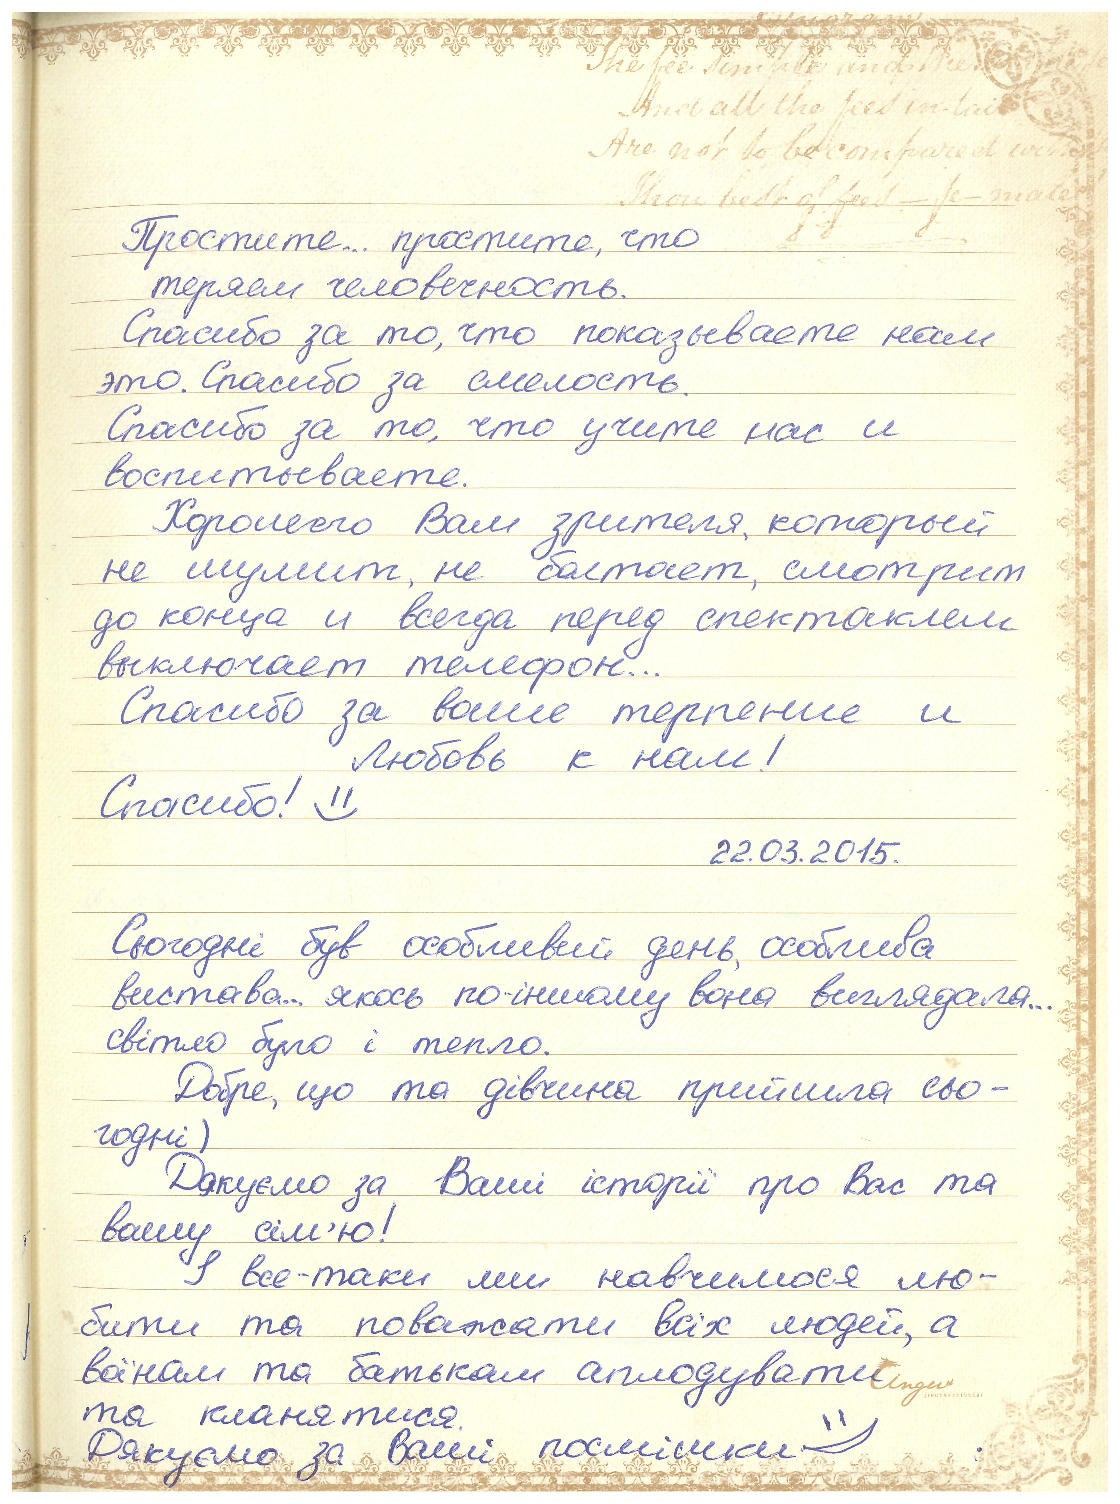 The fee simple and the
And all the fees in-tail
Are not to be compared with
Thou best of fees — fe-male
Простите... простите, что
теряем человечность.
Спасибо за то, что показываете нам
это. Спасибо за смелость.
Спасибо за то, что учите нас и
воспитываете.
Хорошего Вам зрителя, который
не шумит, не болтает, смотрит
до конца и всегда перед спектаклем
выключает телефон...
Спасибо за ваше терпение и
Любовь к нам!
Спасибо!
22.03.2015.
Сьогодні був особливий день, особлива
вистава... якось по-іншому вона виглядала...
світло було і тепло.
Добре, що та дівчина прийшла сьо-
годні)
Дякуємо за Ваші історії про Вас та
вашу сім'ю!
І все-таки ми навчимося лю-
бити та поважати всіх людей, а
воїнам та батькам аплодувати
та кланятися.
Дякуємо за Ваші посмішки